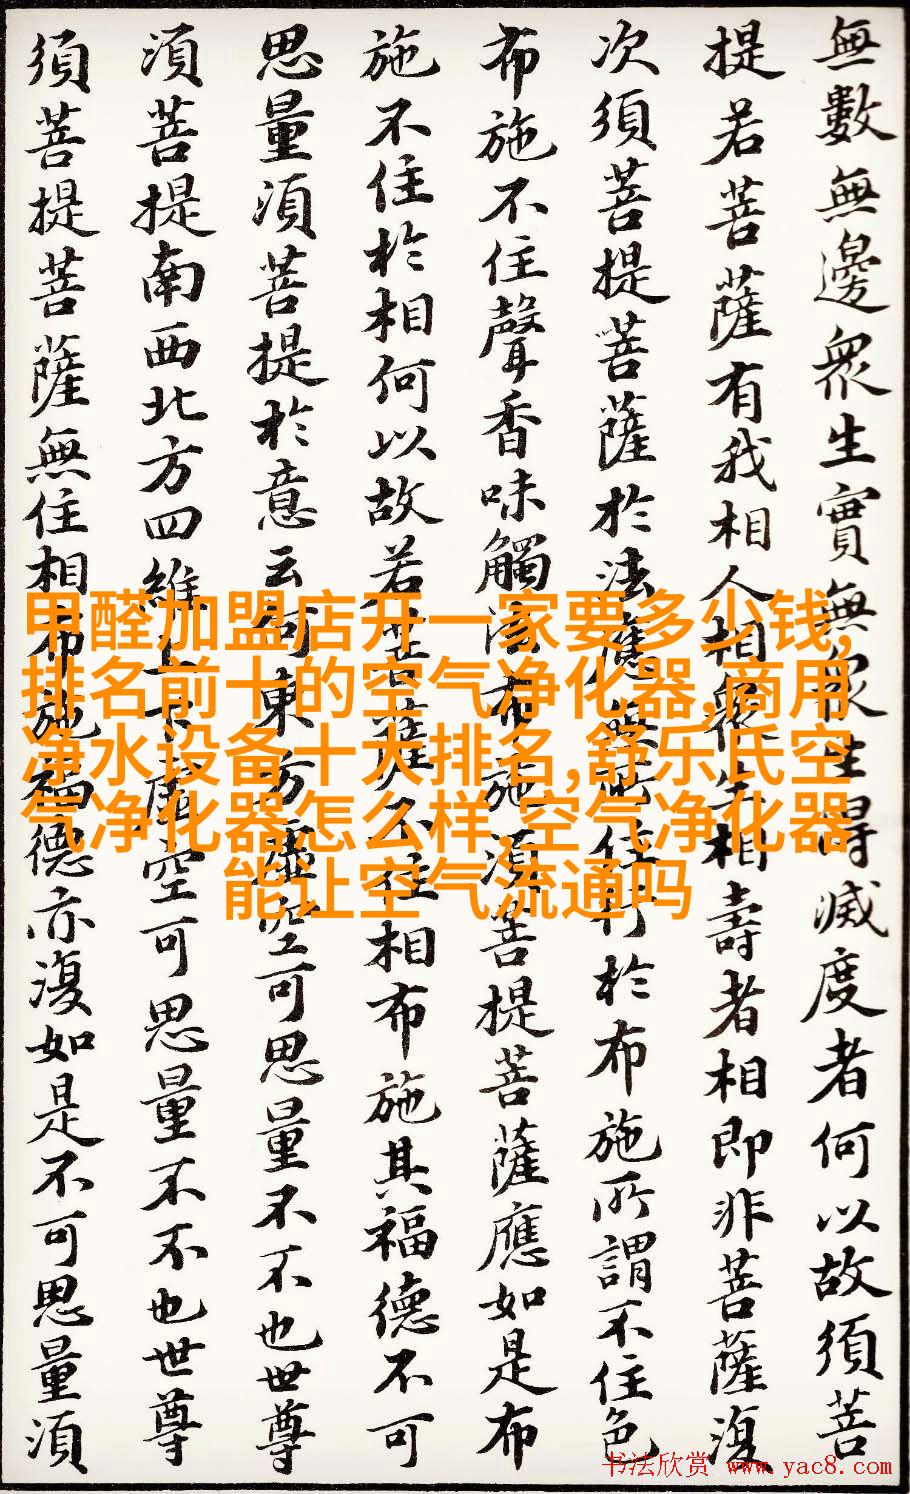 無數無邊眾生實無眾生得滅度者何以故須菩
提若菩薩有我相人相眾生相壽者相即非菩薩復
次須菩提菩薩於法應無所住行於布施所謂不住色
布施不住聲香味觸法布施須菩提菩薩應如是布
施不住於相何以故若菩薩不住相布施其福德不可
思量須菩提於意云何東方虛空可思量不不也世尊
須菩提南西北方四維上下虛空可思量不不也世尊
須菩提菩薩無住相布施福德亦復如是不可思量須
甲醛加盟店开一家要多少钱,
排名前十的空气净化器,商用
净水设备十大排名,舒乐氏空
气净化器怎么样,空气净化器
能让空气流通吗
书法欣赏 www.yac8.com